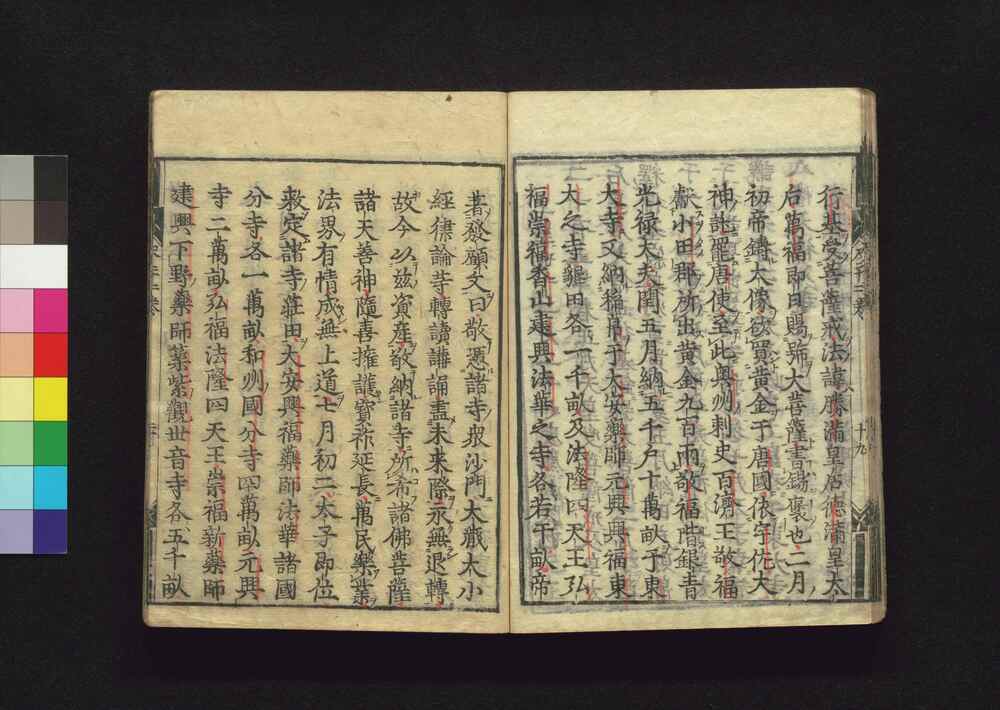 行基受菩薩戒法諱勝滿皇后德滿皇太
后萬福即日賜號大菩薩書錫褒也二月
初帝鑄大像欲買黃金于唐國依宇佐大
神託罷唐使至此奧州刺史百濟王敬福
獻小田郡所出黃金九百兩敬福階銀青
光祿大夫閏五月納五千戶十萬畝于東
大寺又納綿帛于大安藥師元興興福東
大之寺墾田各一千畝及法隆四天王弘
福崇福香山建興法華之寺各若干畝帝
著發願文曰敬憑諸寺衆沙門大藏大小
經律論等轉讀講誦盡未來際永無退轉
故今以茲資産敬納諸寺所希諸佛菩薩
諸天善神隨喜擁護寶祚延長萬民樂業
法界有情成無上道七月初二太子即位
敕定諸寺莊田大安興福藥師法華諸國
分寺各一萬畝和州國分寺四萬畝元興
寺二萬畝弘福法隆四天王崇福新藥師
建興下野藥師築紫觀世音寺各五千畝
十九